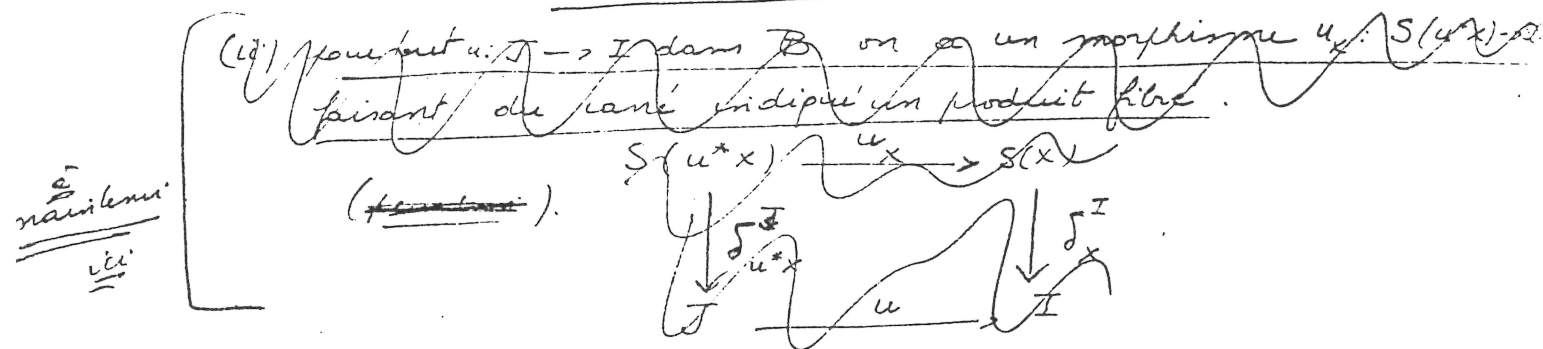 (iii) pour tout u: J —> I dans B on a un morphisme u_x : S(u*x) —>
faisant du carré indiqué un produit fibré.
S(u*x) u_x —> S(x)
à
maintenir
ici
( ).
δ^J_{u*x} δ^I_x
J u I